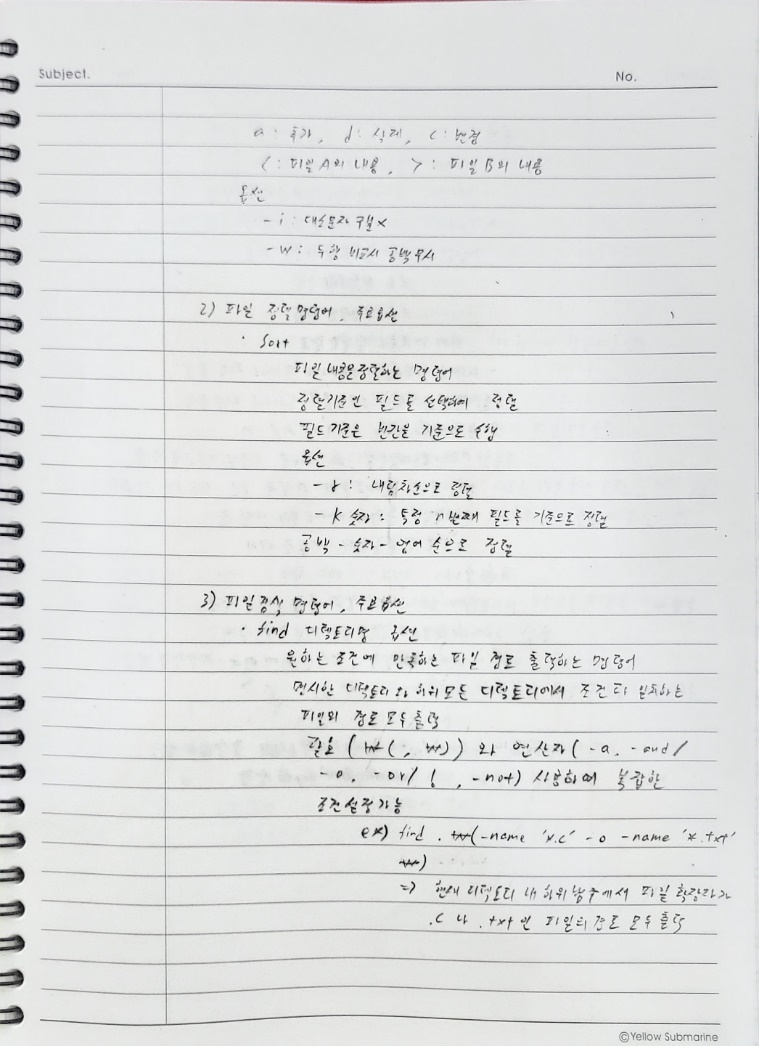 Subject.
No.
a : 추가, d : 삭제, c : 변경
< : 파일 A의 내용, > : 파일 B의 내용
옵션
-i : 대소문자 구분x
-w : 두 행 비교시 공백 무시
2) 파일 정렬 명령어, 주요옵션
· sort
파일 내용을 정렬하는 명령어
정렬기준인 필드를 선택하여 정렬
필드 기준은 빈칸을 기준으로 수행
옵션
-r : 내림차순으로 정렬
-k 숫자 : 특정 n번째 필드를 기준으로 정렬
공백 - 숫자 - 영어 순으로 정렬
3) 파일 검색 명령어, 주요옵션
· find 디렉토리명 옵션
원하는 조건에 만족하는 파일 경로 출력하는 명령어
명시한 디렉토리와 하위 모든 디렉토리에서 조건과 일치하는
파일의 경로 모두 출력
괄호 (₩(, ₩)) 와 연산자 (-a, -and/
-o, -or/ !, -not) 사용하여 복잡한
조건설정가능
ex) find . ₩(-name '*.c' -o -name '*.txt'
₩)
=> 현재 디렉토리 내 하위 에서 파일 확장자가
.c 나 .txt 인 파일의 경로 모두 출력
©Yellow Submarine